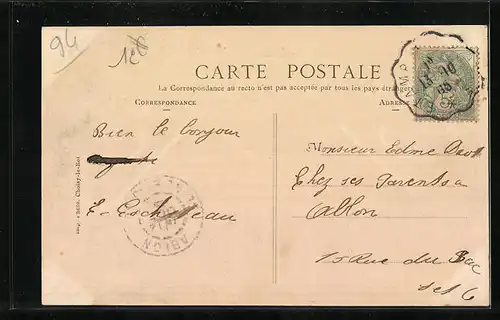 94
12 6
CARTE POSTALE
La Correspondance au recto n'est pas acceptée par tous les pays étrangers
CORRESPONDANCE
ADRES
Bien le bonjour
E. Eschteau
ABLON
Monsieur Edme
Chez ses Parents a
Ablon
15 Rue du Bac
S et O
Choisy-le-Roi